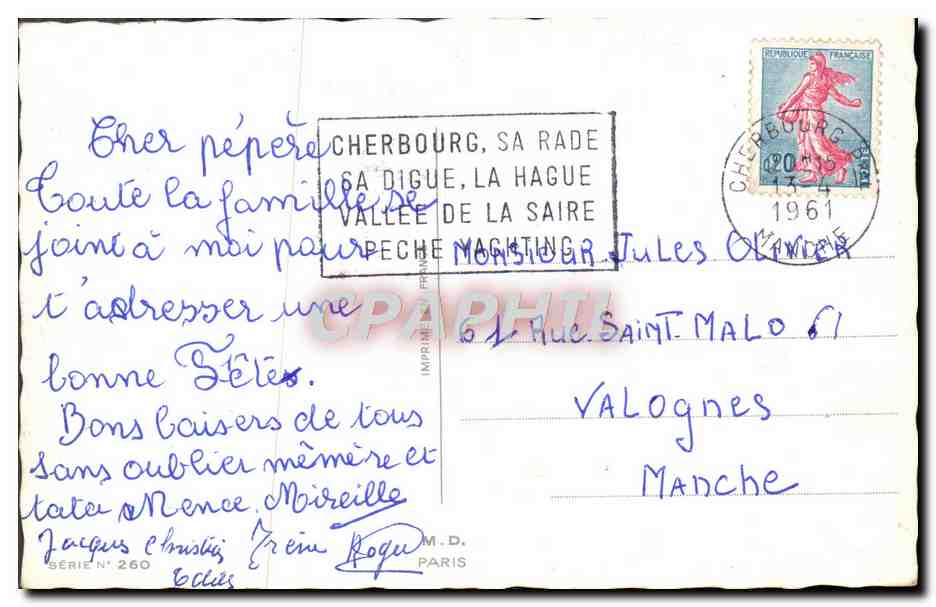 Cher pépère
Toute la famille se
joint à moi pour
t'adresser une
bonne Fête.
Bons baisers de tous
sans oublier mémère et
tata Mence. Mireille
Jacques Christian Irène Roger
SÉRIE N° 260
M.D.
PARIS
IMPRIMÉ EN FRANCE
CHERBOURG, SA RADE
SA DIGUE, LA HAGUE
VALLÉE DE LA SAIRE
PECHE YACHTING
REPUBLIQUE FRANÇAISE
CHERBOURG
13-4
1961
MANCHE
MONSIEUR JULES OLIVIER
61 Rue SAINT-MALO 61
VALOGNES
MANCHE
CPAPHIL